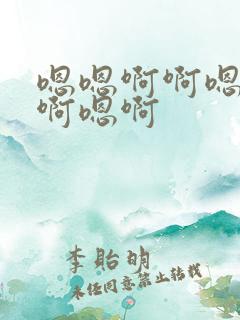 嗯嗯啊啊嗯
啊嗯啊
李眙明
未经同意禁止转载